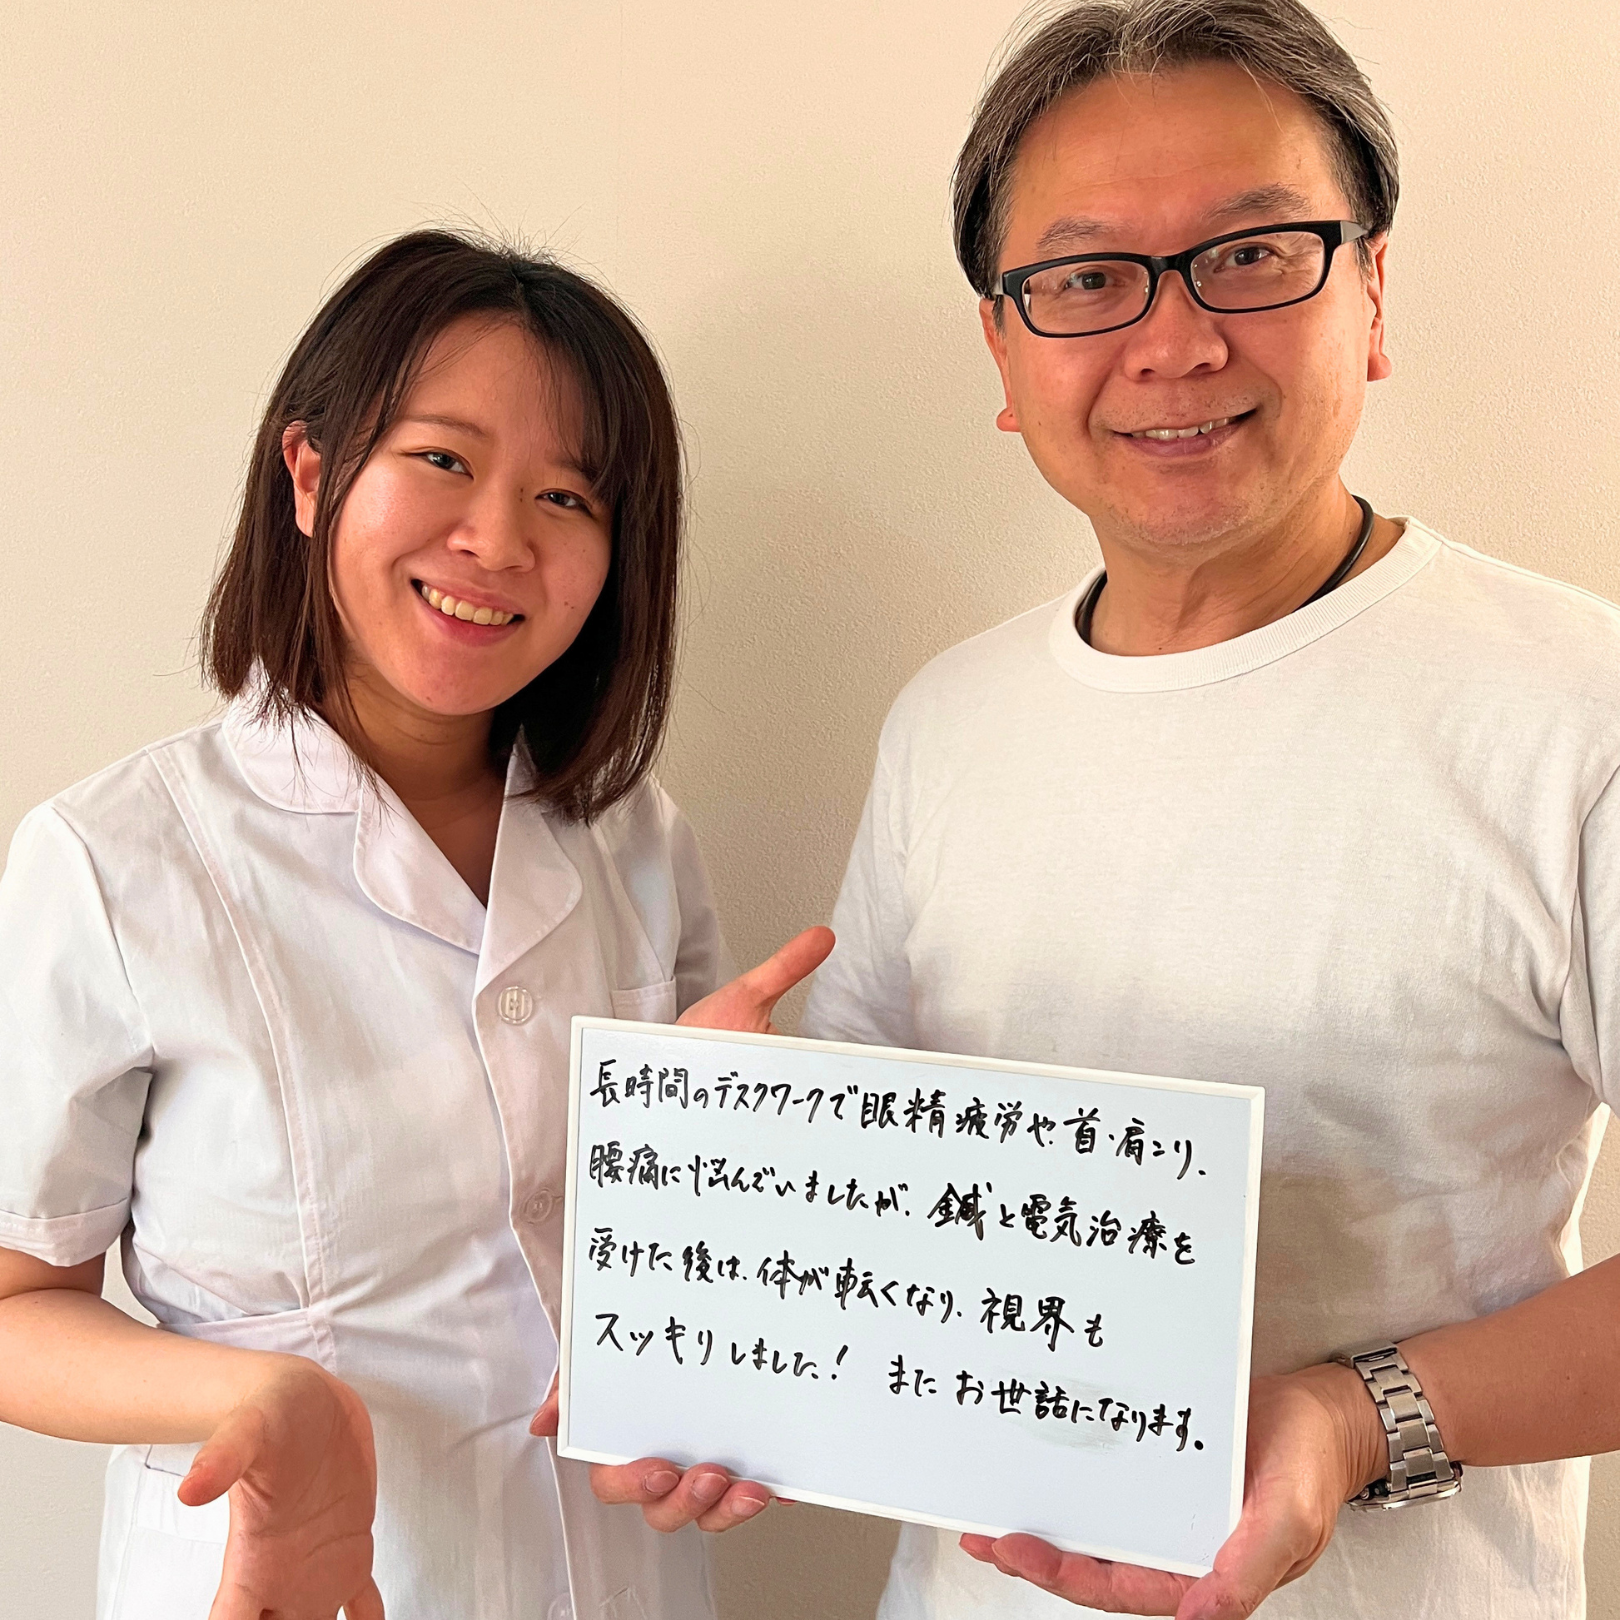 長時間のデスクワークで眼精疲労や、首・肩こり、
腰痛に悩んでいましたが、鍼と電気治療を
受けた後は、体が軽くなり、視界も
スッキリしました！ またお世話になります。